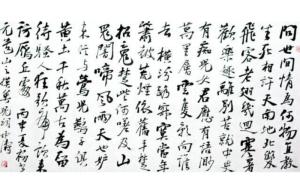 問世間情為何物直教
生死相許天南地北雙
飛客老翅幾回寒暑
歡樂趣離別苦就中更
有癡兒女君應有語渺
萬里層雲千山暮雪隻影向誰
去橫汾路寂寞當年
簫鼓荒煙依舊平楚
招魂楚些何嗟及山
鬼暗啼風雨天也妒
未信與鶯兒燕子俱
黃土千秋萬古為留
待騷人狂歌痛飲來
訪雁丘處 丙申夏
元遺山之摸魚兒